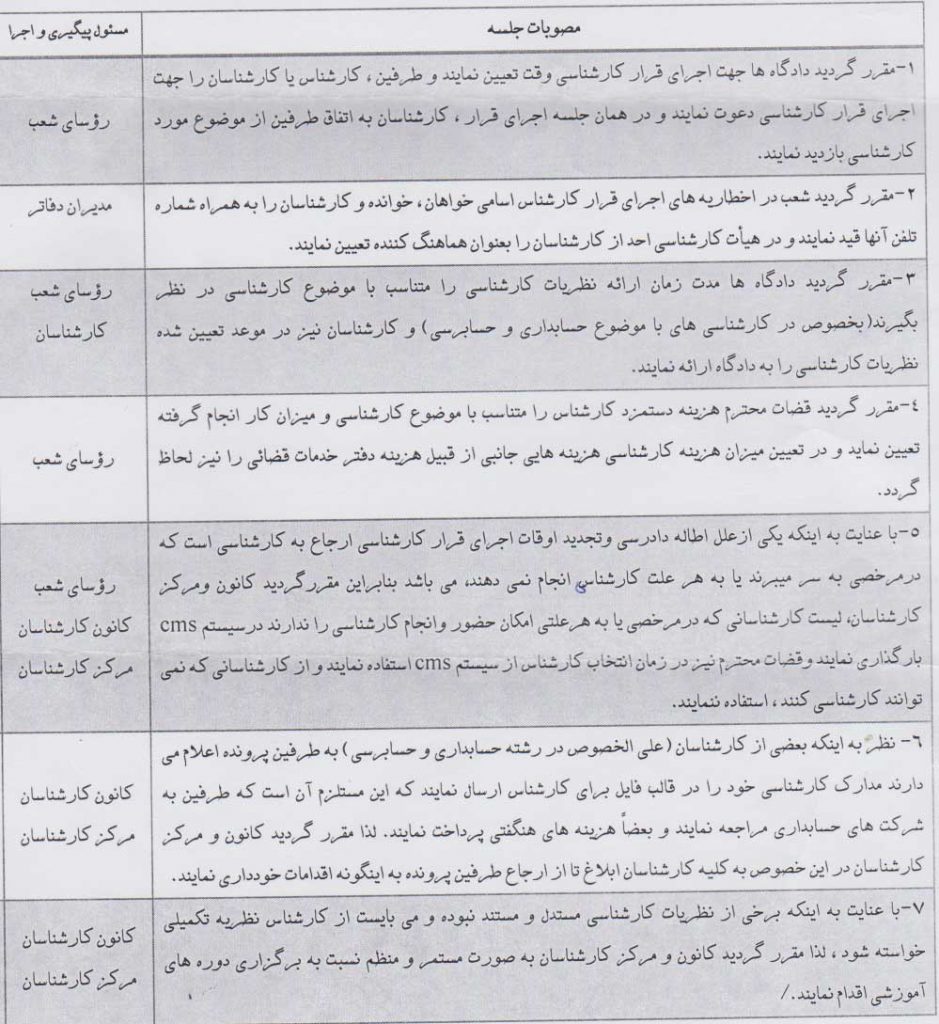 مصوبات جلسه
مسئول پیگیری و اجرا
۱-مقرر گردید دادگاه ها جهت اجرای قرار کارشناسی وقت تعیین نمایند و طرفین ، کارشناس یا کارشناسان را جهت
اجرای قرار کارشناسی دعوت نمایند و در همان جلسه اجرای قرار ، کارشناسان به اتفاق طرفین از موضوع مورد
کارشناسی بازدید نمایند.
رؤسای شعب
۲-مقرر گردید شعب در اخطاریه های اجرای قرار کارشناس اسامی خواهان، خوانده و کارشناسان را به همراه شماره
تلفن آنها قید نمایند و در هیأت کارشناسی احد از کارشناسان را بعنوان هماهنگ کننده تعیین نمایند.
مدیران دفاتر
۳-مقرر گردید دادگاه ها مدت زمان ارائه نظریات کارشناسی را متناسب با موضوع کارشناسی در نظر
بگیرند(بخصوص در کارشناسی های با موضوع حسابداری و حسابرسی) و کارشناسان نیز در موعد تعیین شده
نظریات کارشناسی را به دادگاه ارائه نمایند.
رؤسای شعب
کارشناسان
٤-مقرر گردید قضات محترم هزینه دستمزد کارشناس را متناسب با موضوع کارشناسی و میزان کار انجام گرفته
تعیین نماید و در تعیین میزان هزینه کارشناسی هزینه هایی جانبی از قبیل هزینه دفتر خدمات قضائی را نیز لحاظ
گردد.
رؤسای شعب
۵-با عنایت به اینکه یکی ازعلل اطاله دادرسی وتجدید اوقات اجرای قرار کارشناسی ارجاع به کارشناسی است که
درمرخصی به سر میبرند یا به هر علت کارشناسی انجام نمی دهند، می باشد بنابراین مقررگردید کانون ومرکز
کارشناسان، لیست کارشناسانی که درمرخصی یا به هرعلتی امکان حضور وانجام کارشناسی را ندارند درسیستم cms
بارگذاری نمایند وقضات محترم نیز در زمان انتخاب کارشناس از سیستم cms استفاده نمایند و از کارشناسانی که نمی
توانند کارشناسی کنند ، استفاده ننمایند.
رؤسای شعب
کانون کارشناسان
مرکز کارشناسان
۶- نظر به اینکه بعضی از کارشناسان (علی الخصوص در رشته حسابداری و حسابرسی) به طرفین پرونده اعلام می
دارند مدارک کارشناسی خود را در قالب فایل برای کارشناس ارسال نمایند که این مستلزم آن است که طرفین به
شرکت های حسابداری مراجعه نمایند و بعضاً هزینه های هنگفتی پرداخت نمایند. لذا مقرر گردید کانون و مرکز
کارشناسان در این خصوص به کلیه کارشناسان ابلاغ تا از ارجاع طرفین پرونده به اینگونه اقدامات خودداری نمایند.
کانون کارشناسان
مرکز کارشناسان
۷-با عنایت به اینکه برخی از نظریات کارشناسی مستدل و مستند نبوده و می بایست از کارشناس نظریه تکمیلی
خواسته شود ، لذا مقرر گردید کانون و مرکز کارشناسان به صورت مستمر و منظم نسبت به برگزاری دوره های
آموزشی اقدام نمایند./
کانون کارشناسان
مرکز کارشناسان